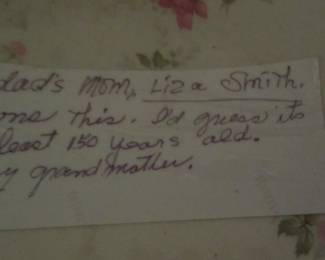 dad's Mom, Liza Smith.
one this. I'd guess its
least 150 years old.
y grandmother.